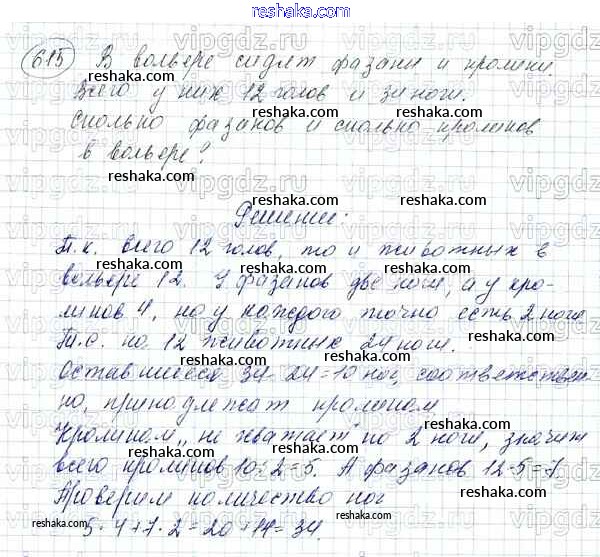 reshaka.com
615 В вольере сидят фазаны и кролики.
Всего у них 12 голов и 34 ноги.
Сколько фазанов и сколько кроликов
в вольере?
Решение:
Т.к. всего 12 голов, то и животных в
вольере 12. У фазанов две ноги, а у кро-
ликов 4, но у каждого точно есть 2 ноги
Т.е. на 12 животных 24 ноги.
Оставшиеся 34-24=10 ног, соответствен-
но, принадлежат кроликам
"Кроликам" не хватает по 2 ноги, значит
всего кроликов 10:2=5. А фазанов 12-5=7.
Проверим количество ног
5·4+7·2=20+14=34